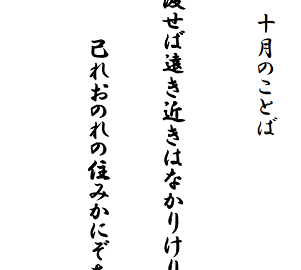 十月のことば
渡せば遠き近きはなかりけり
己れおのれの住みかにぞ